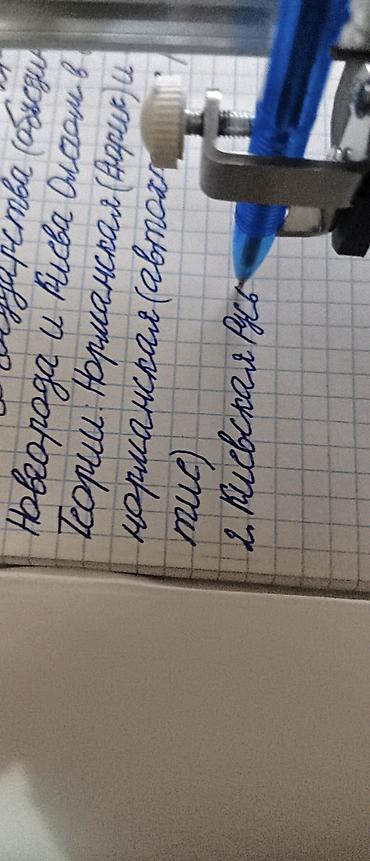 государства (объедин
Новгорода и Киева Олегом в
Теории: Норманская (Рюрик) и
норманская (автохт
тис)
2. Киевская Русь